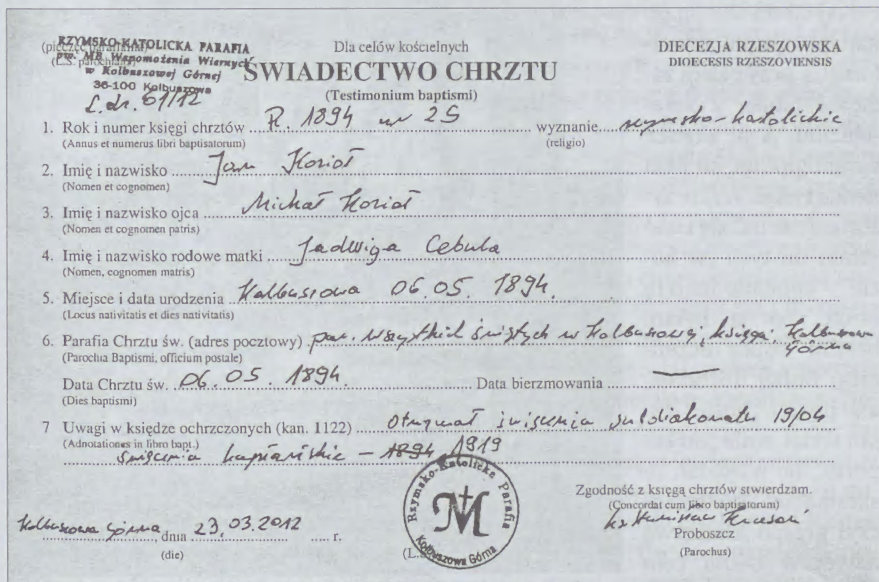 (pieczęć parafialna)
(L.S. parochiae)
RZYMSKO-KATOLICKA PARAFIA
pw. MB Wspomożenia Wiernych
w Kolbuszowej Górnej
36-100 Kolbuszowa
L.dz. 61/12
Dla celów kościelnych
ŚWIADECTWO CHRZTU
(Testimonium baptismi)
DIECEZJA RZESZOWSKA
DIOECESIS RZESZOVIENSIS
1. Rok i numer księgi chrztów R. 1894 nr 25 wyznanie rzymsko-katolickie
(Annus et numerus libri baptisatorum) (religio)
2. Imię i nazwisko Jan Kozioł
(Nomen et cognomen)
3. Imię i nazwisko ojca Michał Kozioł
(Nomen et cognomen patris)
4. Imię i nazwisko rodowe matki Jadwiga Cebula
(Nomen, cognomen matris)
5. Miejsce i data urodzenia Kolbuszowa 06.05.1894.
(Locus nativitatis et dies nativitatis)
6. Parafia Chrztu św. (adres pocztowy) par. Wszystkich Świętych w Kolbuszowej, księga: Kolbuszowa Górna
(Parochia Baptismi, officium postale)
Data Chrztu św. 06.05.1894. Data bierzmowania —
(Dies baptismi)
7 Uwagi w księdze ochrzczonych (kan. 1122) Otrzymał święcenia subdiakonatu 19/04
(Adnotationes in libro bapt.)
święcenia kapłańskie – 1894 1919
Rzymsko-Katolicka Parafia
Kolbuszowa Górna
Zgodność z księgą chrztów stwierdzam.
(Concordat cum libro baptisatorum)
Kolbuszowa Górna, dnia 23.03.2012 r.
(die)
(L.S.)
Proboszcz
(Parochus)